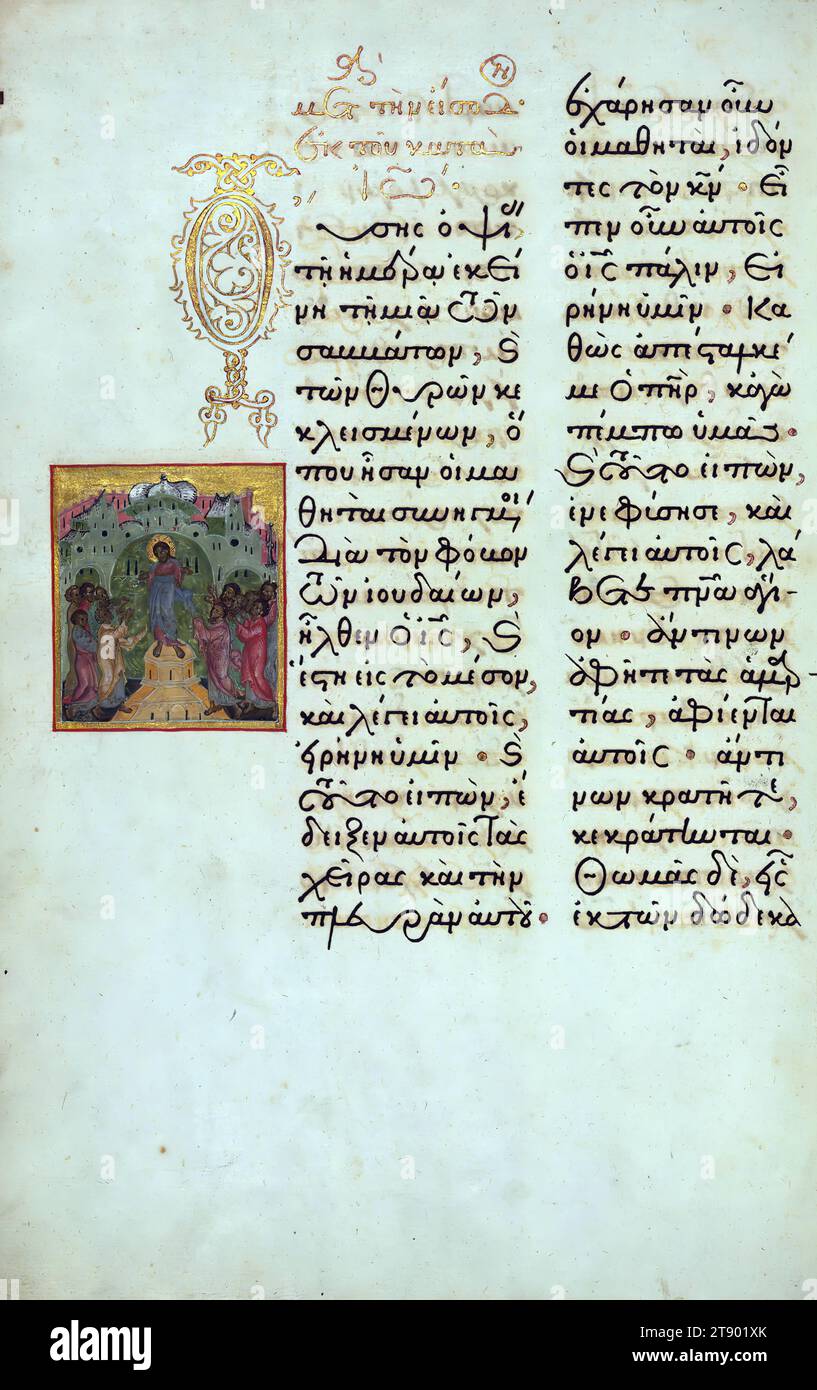 Α
η
ἐκ τοῦ κατὰ
Ἰω
Ο
ὔσης ὀψί
τῇ ἡμέρᾳ ἐκεί
νῃ τῇ μιᾷ τῶν
σαββάτων, ϗ
τῶν θυρῶν κε
κλεισμένων, ὅ
που ἦσαν οἱ μα
θηταὶ συνηγμένοι
διὰ τὸν φόβον
τῶν ἰουδαίων,
ἦλθεν ὁ ἰς, ϗ
ἔστη εἰς τὸ μέσον,
καὶ λέγει αὐτοῖς,
εἰρήνη ὑμῖν· ϗ
τοῦτο εἰπὼν, ἔ
δειξεν αὐτοῖς τὰς
χεῖρας καὶ τὴν
πλευρὰν αὐτοῦ·
ἐχάρησαν οὖν
οἱ μαθηταὶ, ἰδόν
τες τὸν κν· εἶ
πεν οὖν αὐτοῖς
ὁ ἰς πάλιν, εἰ
ρήνη ὑμῖν· κα
θὼς ἀπέσταλκέ
με ὁ πηρ, κἀγὼ
πέμπω ὑμᾶς·
ϗ τοῦτο εἰπὼν,
ἐνεφύσησε, καὶ
λέγει αὐτοῖς, λά
βετε πνα ἅγι-
ον· ἄν τινων
ἀφῆτε τὰς ἁμαρ
τίας, ἀφίενται
αὐτοῖς· ἄν τι
νων κρατῆτε,
κεκράτηνται·
Θωμᾶς δὲ, εἷς
ἐκ τῶν δώδεκα
alamy
Image ID: 2T901XK
www.alamy.com